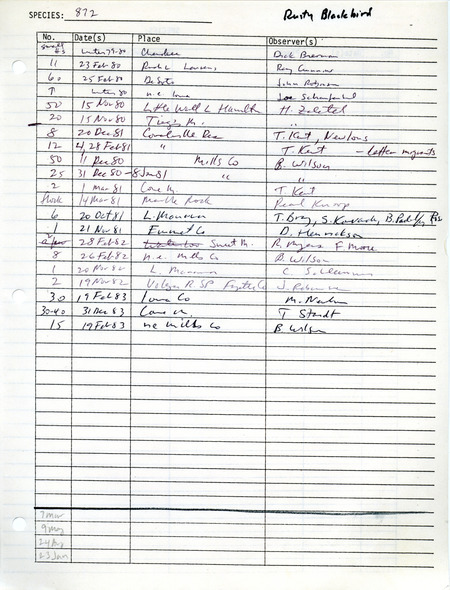 SPECIES: 872 Rusty Blackbird
No. Date(s) Place Observer(s)
small #s winter 79-80 Cherokee Dick Bierman
11 23 Feb 80 Ray
60 25 Feb 80 DeSoto John
n.e. Iowa Joe
50 15 Nov 80 Little Wall L Hamilton H. Zaletel
20 15 Nov 80 "
8 20 Dec 81 Coralville Res T. Kent, Newlons
12 4, 28 Feb 81 " T. Kent - latter migrants
50 11 Dec 80 Mills Co B. Wilson
25 31 Dec 80 - 8 Jan 81 " "
2 1 Mar 81 Cone M. T. Kent
flock 14 Mar 81 Marble Rock Pearl Knoop
6 20 Oct 81 L. Manawa T. Bray, S. Kovanda, B. Padelford
1 21 Nov 81 Emmet Co D. Henrickson
a few 28 Feb 82 Waterloo Sweet M. R. Myers F Moore
8 26 Feb 82 n.e. Mills Co B. Wilson
1 20 Nov 82 L. Manawa C. S.
2 19 Nov 82 Volga R SP Fayette Co J.
30 19 Feb 83 Iowa Co M. Newlon
30-40 31 Dec 83 Cone M. T Staudt
15 19 Feb 83 ne Mills Co B. Wilson
7 Mar
9 May
24 Aug
23 Jan